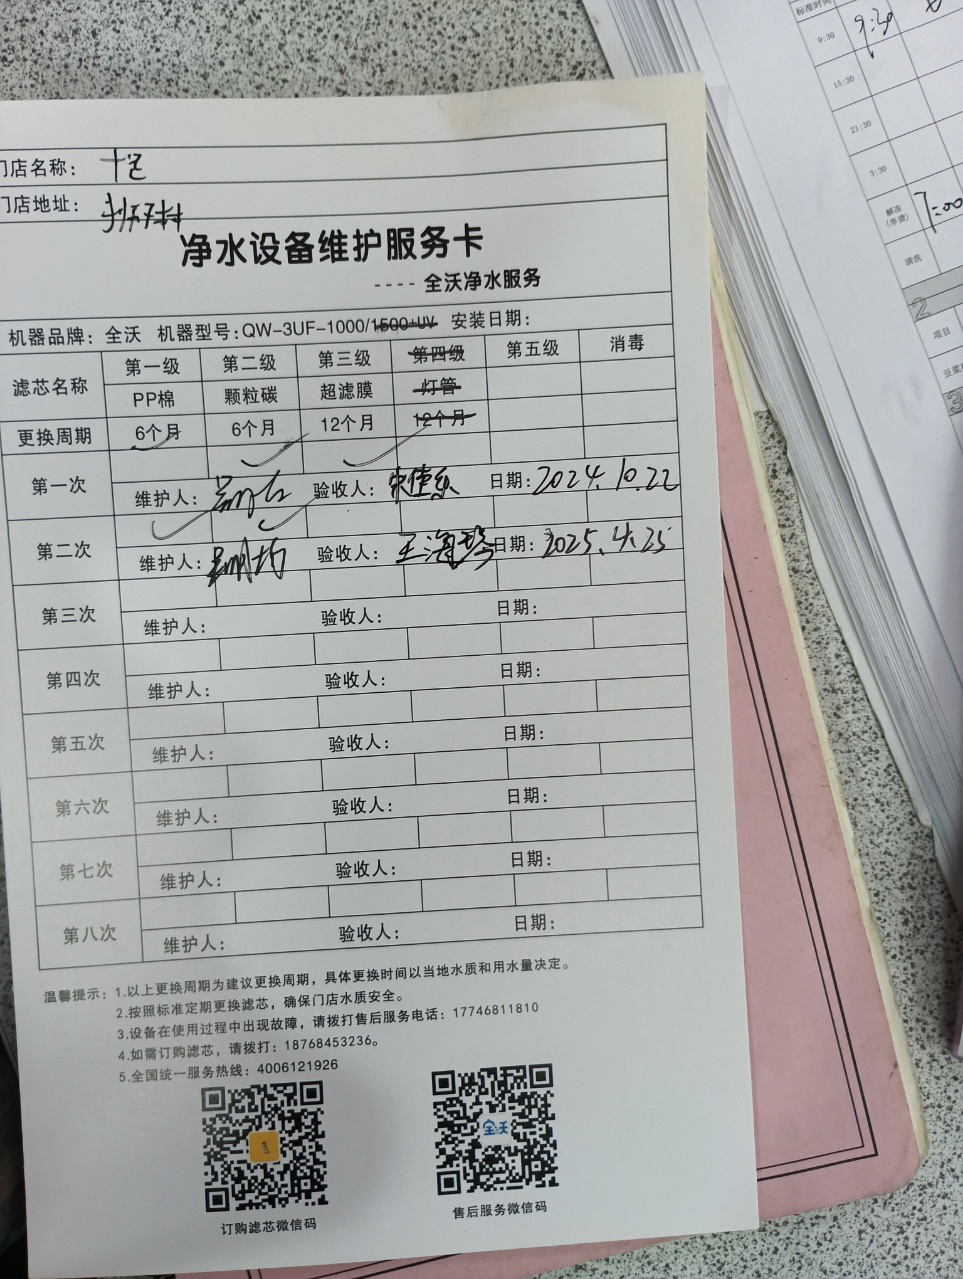 门店名称：
门店地址：
净水设备维护服务卡
---- 全沃净水服务
机器品牌：全沃 机器型号：QW-3UF-1000/1500+UV 安装日期：
滤芯名称 第一级 第二级 第三级 第四级 第五级 消毒
PP棉 颗粒碳 超滤膜 灯管
更换周期 6个月 6个月 12个月 12个月
第一次 维护人： 验收人： 日期：2024.10.22
第二次 维护人： 验收人：王海 日期：2025.4.25
第三次 维护人： 验收人： 日期：
第四次 维护人： 验收人： 日期：
第五次 维护人： 验收人： 日期：
第六次 维护人： 验收人： 日期：
第七次 维护人： 验收人： 日期：
第八次 维护人： 验收人： 日期：
温馨提示：1.以上更换周期为建议更换周期，具体更换时间以当地水质和用水量决定。
2.按照标准定期更换滤芯，确保门店水质安全。
3.设备在使用过程中出现故障，请拨打售后服务电话：17746811810
4.如需订购滤芯，请拨打：18768453236。
5.全国统一服务热线：4006121926
全沃
订购滤芯微信码
售后服务微信码
标准时间
9:30 9:30
15:30
21:30
3:30
解冻 7:00
清洗
2
项目
豆浆
3